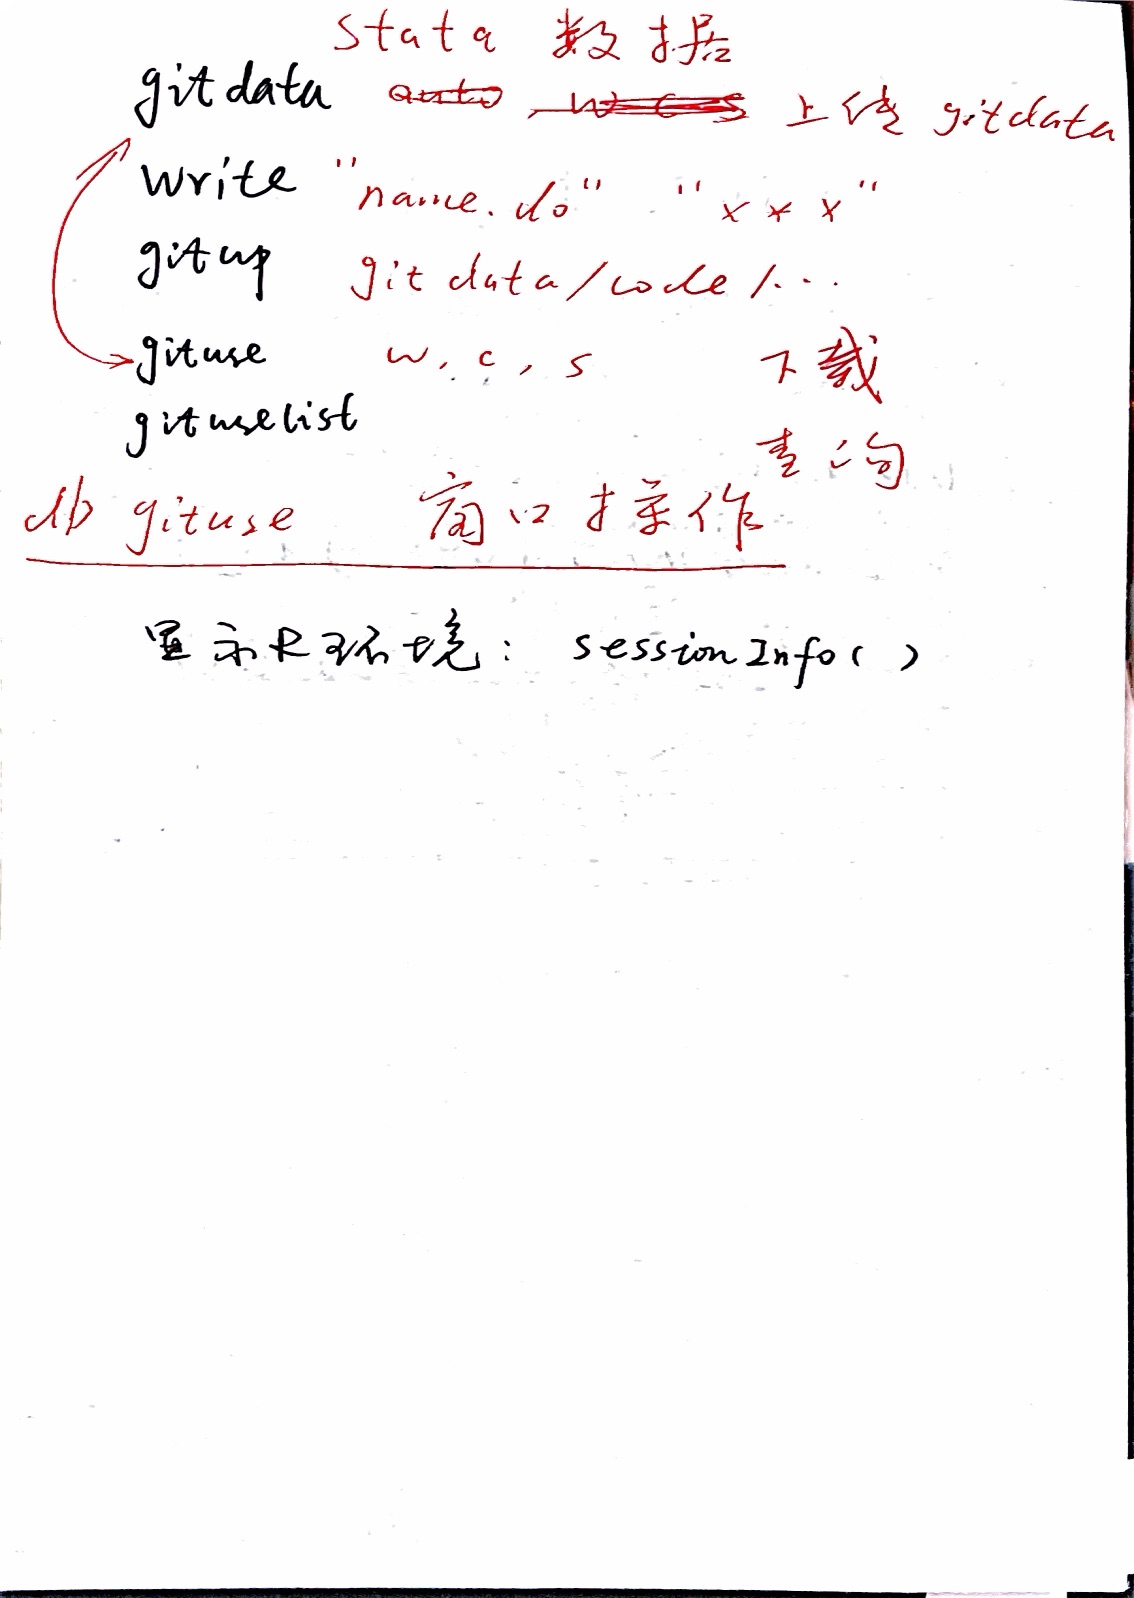 stata 数据
gitdata 上传 gitdata
write "name.do" "x x x"
gitup gitdata/code/...
gituse w, c, s 下载
gituselist 查询
db gituse 窗口操作
显示R环境: sessionInfo()